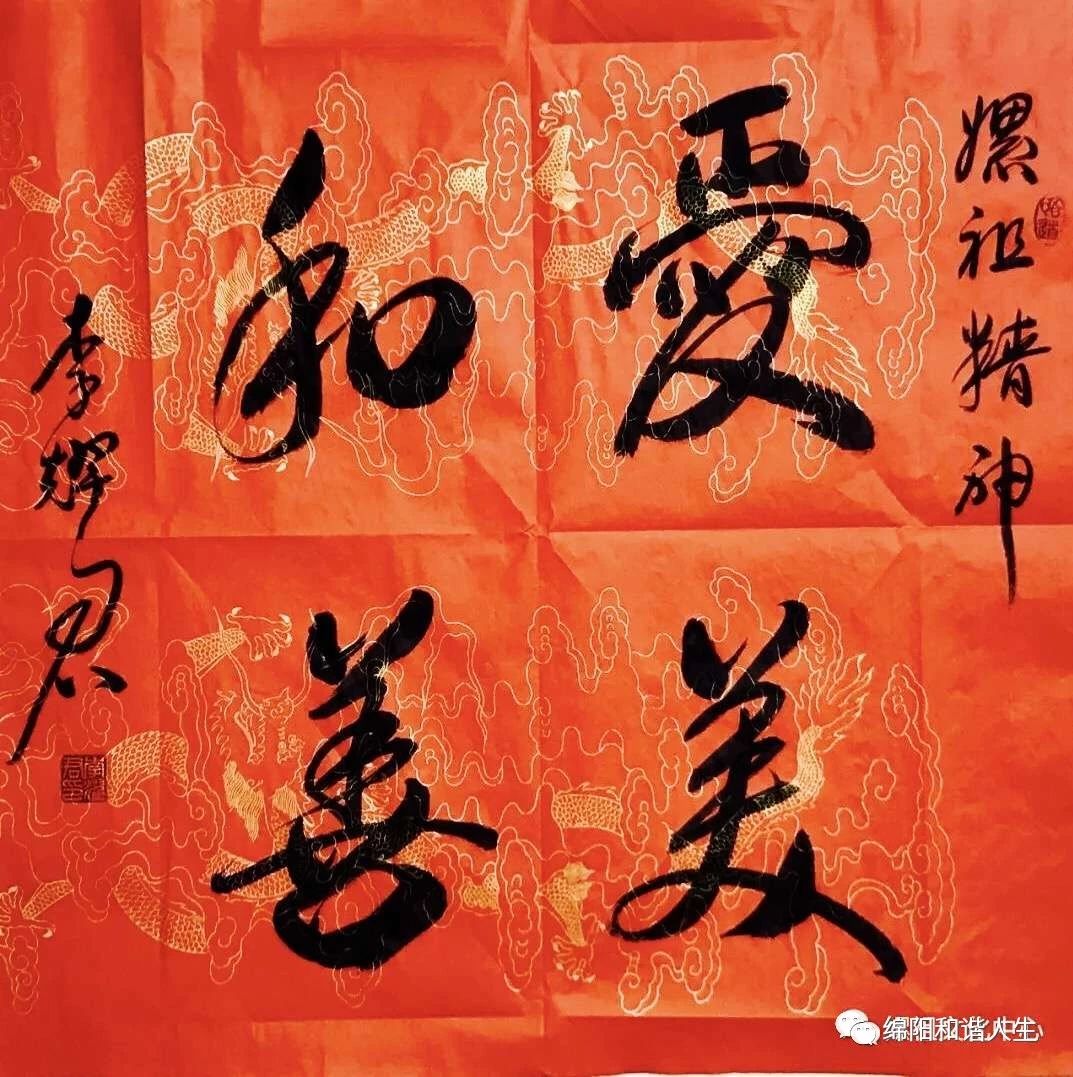 嫘祖精神
愛美
和善
李輝君
绵阳和谐人生